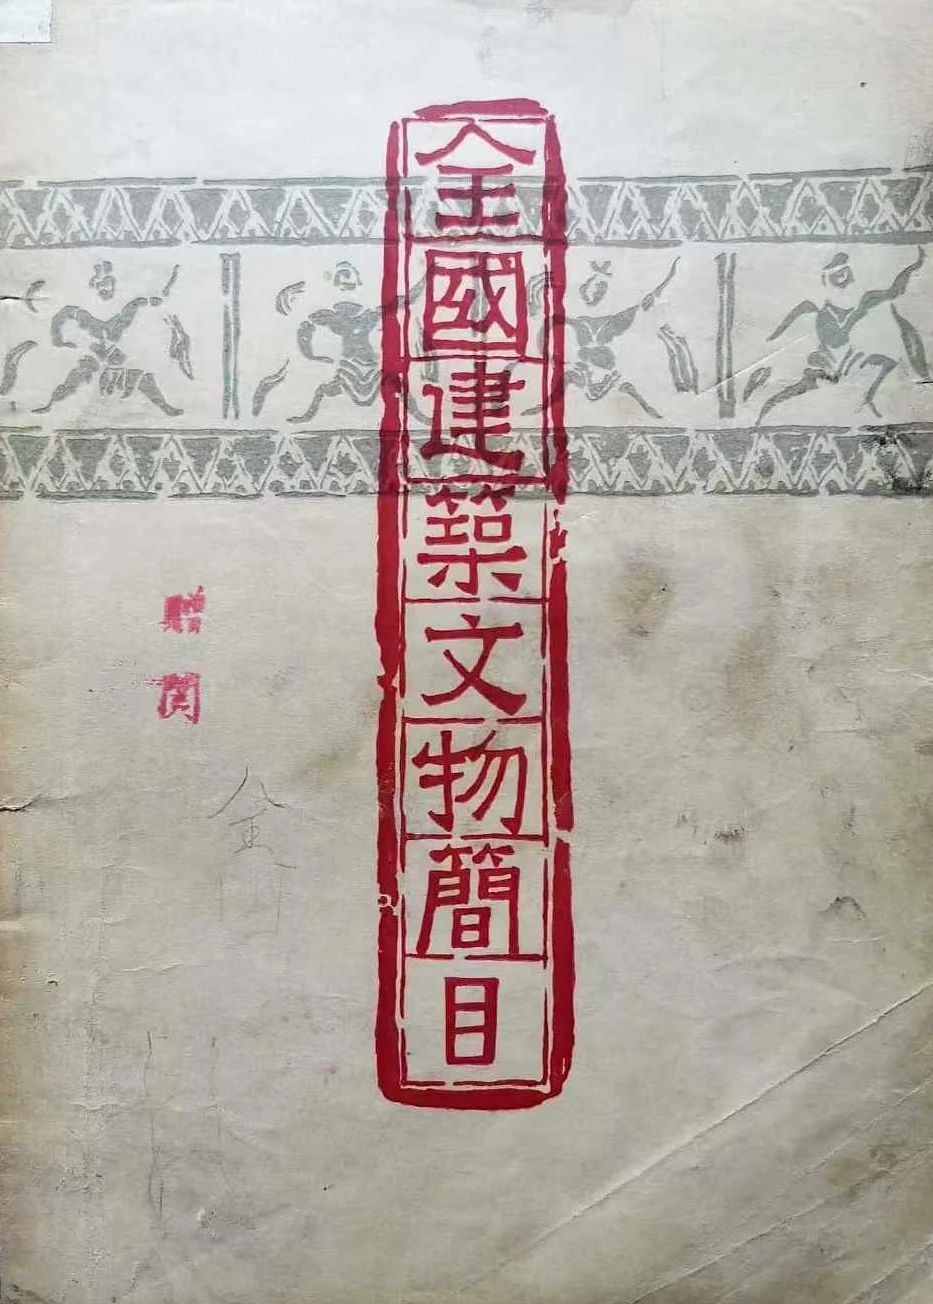 全國建築文物簡目
贈閱
全